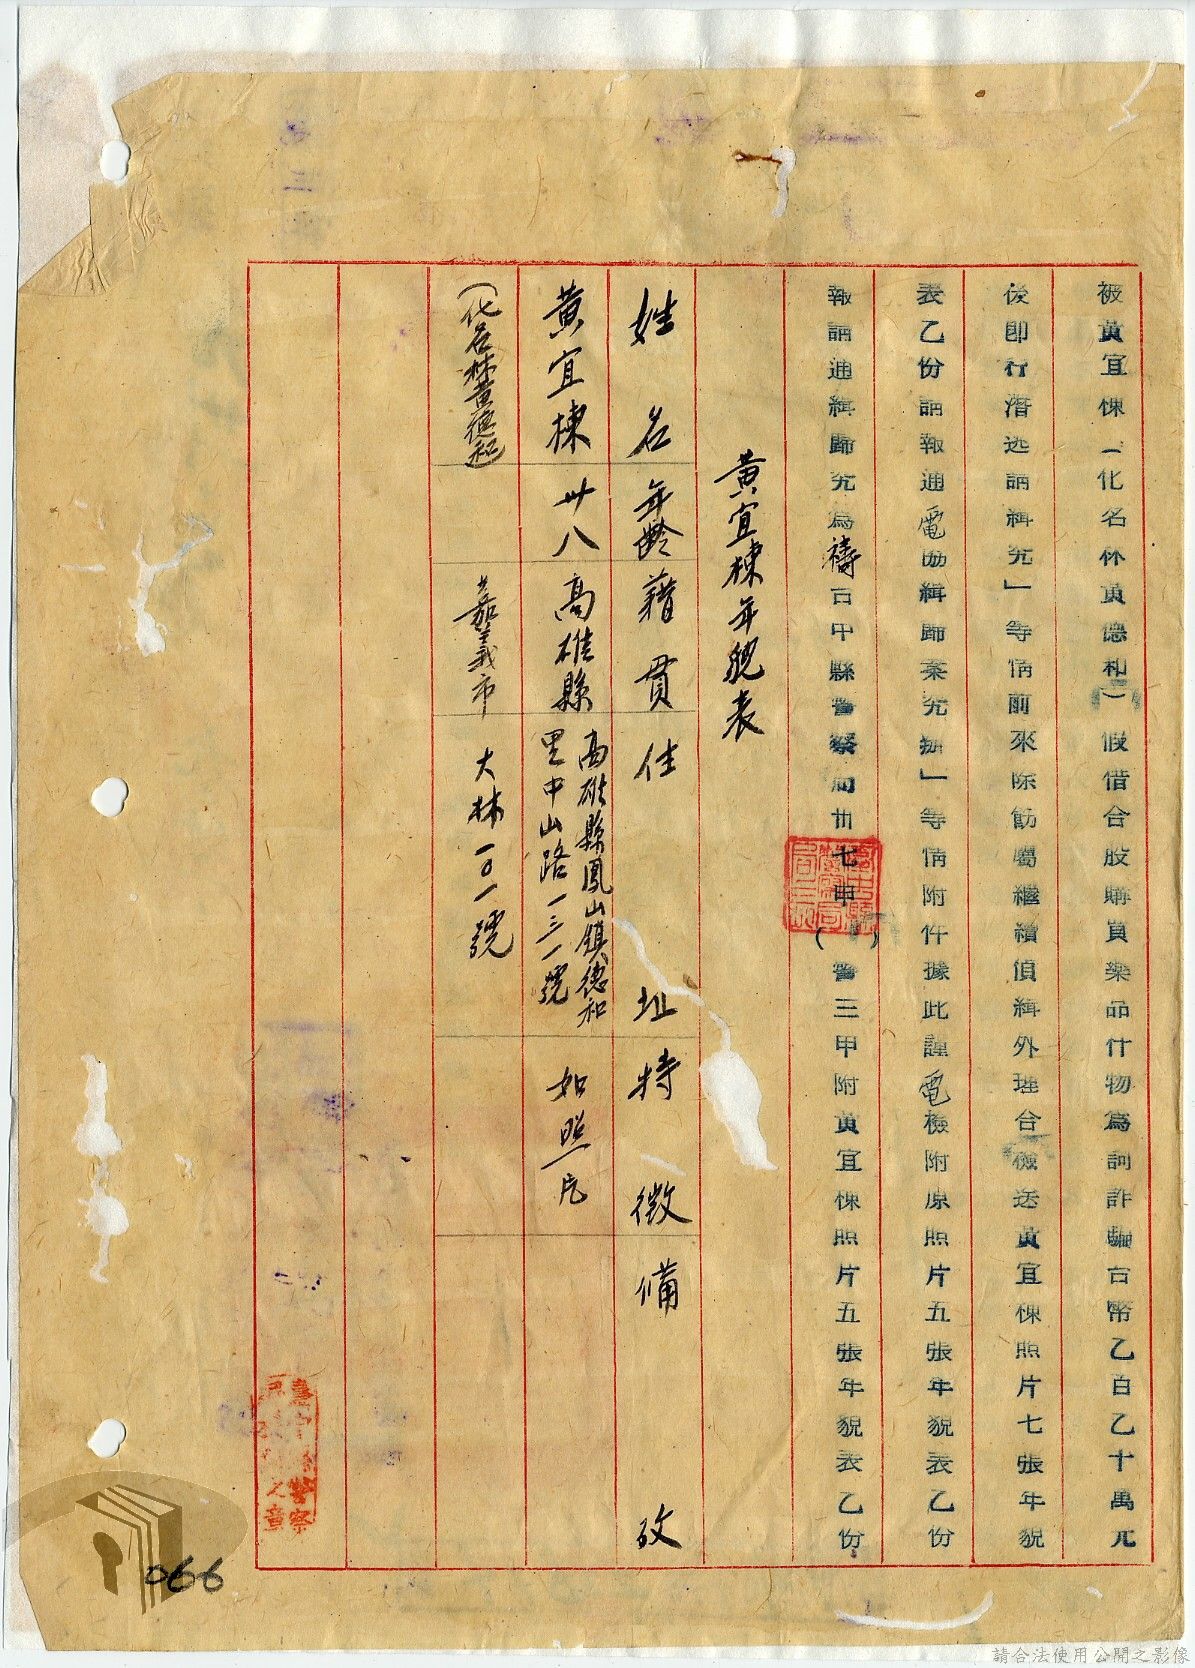 被黃宜棟（化名林黃德和）假借合股購買藥品什物為詞詐騙台幣乙百乙十萬元
後即行潛逃請緝究」等情前來除飭屬繼續偵緝外理合檢送黃宜棟照片七張年貌
表乙份請報通電協緝歸案究辦」等情附件據此謹電檢附原照片五張年貌表乙份
報請通緝歸究為禱台中縣警察局卅七申（　）警三甲附黃宜棟照片五張年貌表乙份
黃宜棟年貌表
姓名 年齡 藉貫 住址 特徵 備攷
黃宜棟 卅八 高雄縣 高雄縣鳳山鎮德和里中山路一三一號 如照片
（化名林黃德和） 嘉義市 大林一〇一號
066
請合法使用公開之影像